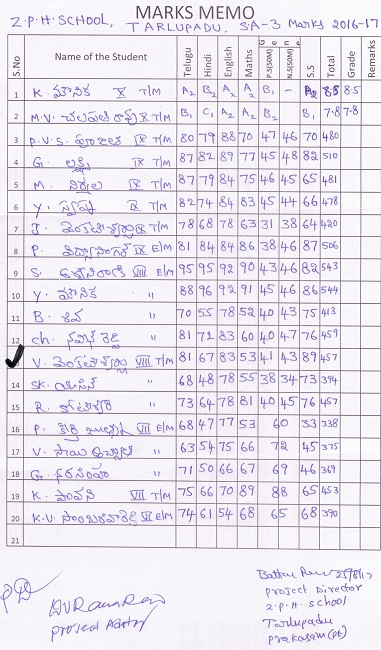 MARKS MEMO
Z.P.H. SCHOOL, TARLUPADU, SA-3 Marks 2016-17
S.No Name of the Student Telugu Hindi English Maths Gene P.S(50M) N.S(50M) S.S Total Grade Remarks
1 K. మౌనిక X T/M A2 B2 A2 A2 B1 - A2 8.8 8.5
2 M.V. X T/M B1 C1 A2 A2 B2 B1 7.8 7.8
3 P.V.S. IX T/M 80 79 88 70 47 46 70 480
4 G. లక్ష్మి IX T/M 87 82 89 77 45 48 82 510
5 M. నిర్మల IX T/M 87 79 84 75 46 45 65 481
6 Y. స్వప్న IX T/M 82 74 84 83 45 44 66 478
7 T. వెంకటేశ్వర్లు IX T/M 78 68 78 63 31 38 64 420
8 P. IX E/M 81 84 84 86 38 46 87 506
9 S. VIII E/M 95 95 92 90 43 46 82 543
10 Y. మౌనిక " 88 96 92 91 45 46 86 544
11 B. శివ " 70 55 78 52 40 43 75 413
12 Ch. నవీన్ రెడ్డి " 81 72 83 60 40 47 76 459
V. వెంకటేశ్వర్లు VIII T/M 81 67 83 53 41 43 89 457
14 SK. " 68 48 78 55 38 34 73 394
15 R. " 73 64 78 81 40 45 76 457
16 P. VII E/M 68 47 77 53 60 33 338
17 V. సాయి " 63 54 75 66 72 45 375
18 G. నరసింహా " 71 50 66 67 69 46 369
19 K. పావని VII T/M 75 66 70 89 88 65 453
20 K.V. VII E/M 74 61 54 68 65 68 390
21
25/8/17
Project Director
Z.P.H. School
Tarlupadu
Prakasam (Dt)